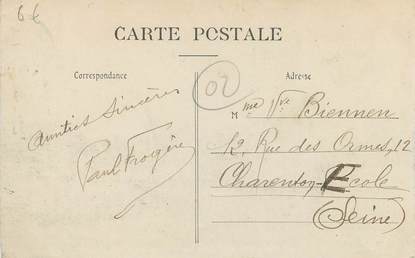 6€
CARTE POSTALE
Correspondance
Adresse
02
Amitiés Sincères
Paul Frogère
Mme Vve Biennen
12, Rue des Ormes, 12
Charenton-Ecole
(Seine)